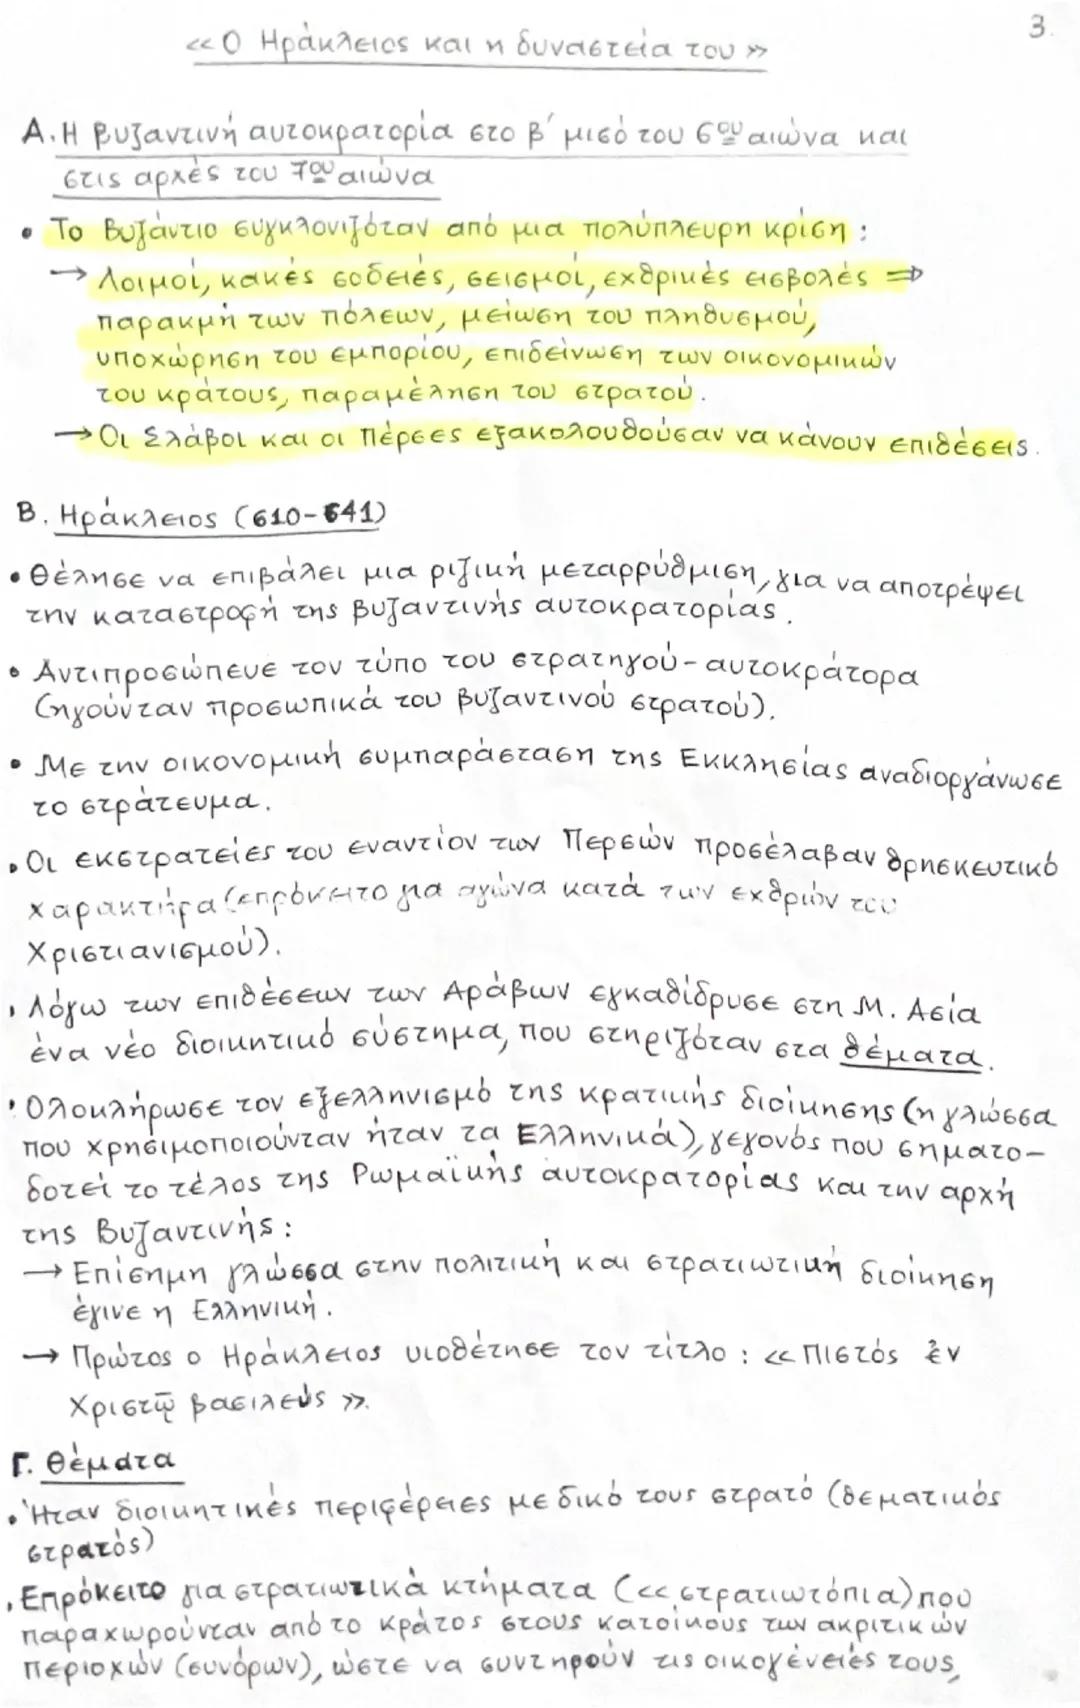 3.
«Ο Ηράκλειος και η δυναστεία του»
Α. Η Βυζαντινή αυτοκρατορία στο β΄ μισό του 6ου αιώνα και
στις αρχές του 7ου αιώνα
• Το Βυζάντιο συγκλονιζόταν από μια πολύπλευρη κρίση:
→ Λοιμοί, κακές σοδειές, σεισμοί, εχθρικές εισβολές ⇒
παρακμή των πόλεων, μείωση του πληθυσμού,
υποχώρηση του εμπορίου, επιδείνωση των οικονομικών
του κράτους, παραμέληση του στρατού.
→ Οι Σλάβοι και οι Πέρσες εξακολουθούσαν να κάνουν επιθέσεις.
Β. Ηράκλειος (610-641)
• Θέλησε να επιβάλει μια ριζική μεταρρύθμιση, για να αποτρέψει
την καταστροφή της βυζαντινής αυτοκρατορίας.
• Αντιπροσώπευε τον τύπο του στρατηγού-αυτοκράτορα
(ηγούνταν προσωπικά του βυζαντινού στρατού).
• Με την οικονομική συμπαράσταση της Εκκλησίας αναδιοργάνωσε
το στράτευμα.
• Οι εκστρατείες του εναντίον των Περσών προσέλαβαν θρησκευτικό
χαρακτήρα (επρόκειτο για αγώνα κατά των εχθρών του
Χριστιανισμού).
• Λόγω των επιθέσεων των Αράβων εγκαθίδρυσε στη Μ. Ασία
ένα νέο διοικητικό σύστημα, που στηριζόταν στα θέματα.
• Ολοκλήρωσε τον εξελληνισμό της κρατικής διοίκησης (η γλώσσα
που χρησιμοποιούνταν ήταν τα Ελληνικά), γεγονός που σηματο-
δοτεί το τέλος της Ρωμαϊκής αυτοκρατορίας και την αρχή
της Βυζαντινής:
→ Επίσημη γλώσσα στην πολιτική και στρατιωτική διοίκηση
έγινε η Ελληνική.
→ Πρώτος ο Ηράκλειος υιοθέτησε τον τίτλο: «Πιστός ἐν
Χριστῷ βασιλεύς».
Γ. Θέματα
• Ήταν διοικητικές περιφέρειες με δικό τους στρατό (θεματικός
στρατός)
• Επρόκειτο για στρατιωτικά κτήματα («στρατιωτόπια) που
παραχωρούνταν από το κράτος στους κατοίκους των ακριτικών
περιοχών (συνόρων), ώστε να συντηρούν τις οικογένειές τους,